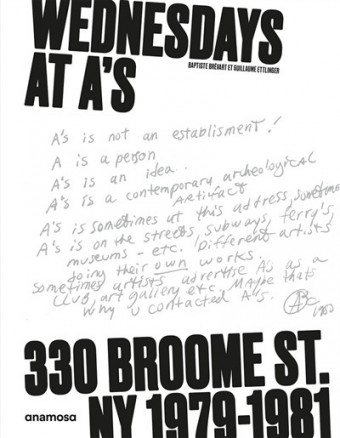 WEDNESDAYS
AT A'S
BAPTISTE BRÉVART ET GUILLAUME ETTLINGER
A's is not an establisment!
A is a person
A's is an idea..
A's is a contemporary archeological
Artifact
A's is sometimes at this address, sometimes
A's is on the streets, subways, ferry's,
museums - etc. Different artists
doing their own works.
sometimes artists advertise A's as a
Club, art gallery etc. Maybe thats
why u contacted A's.
1980
330 BROOME ST.
anamosa
NY 1979-1981